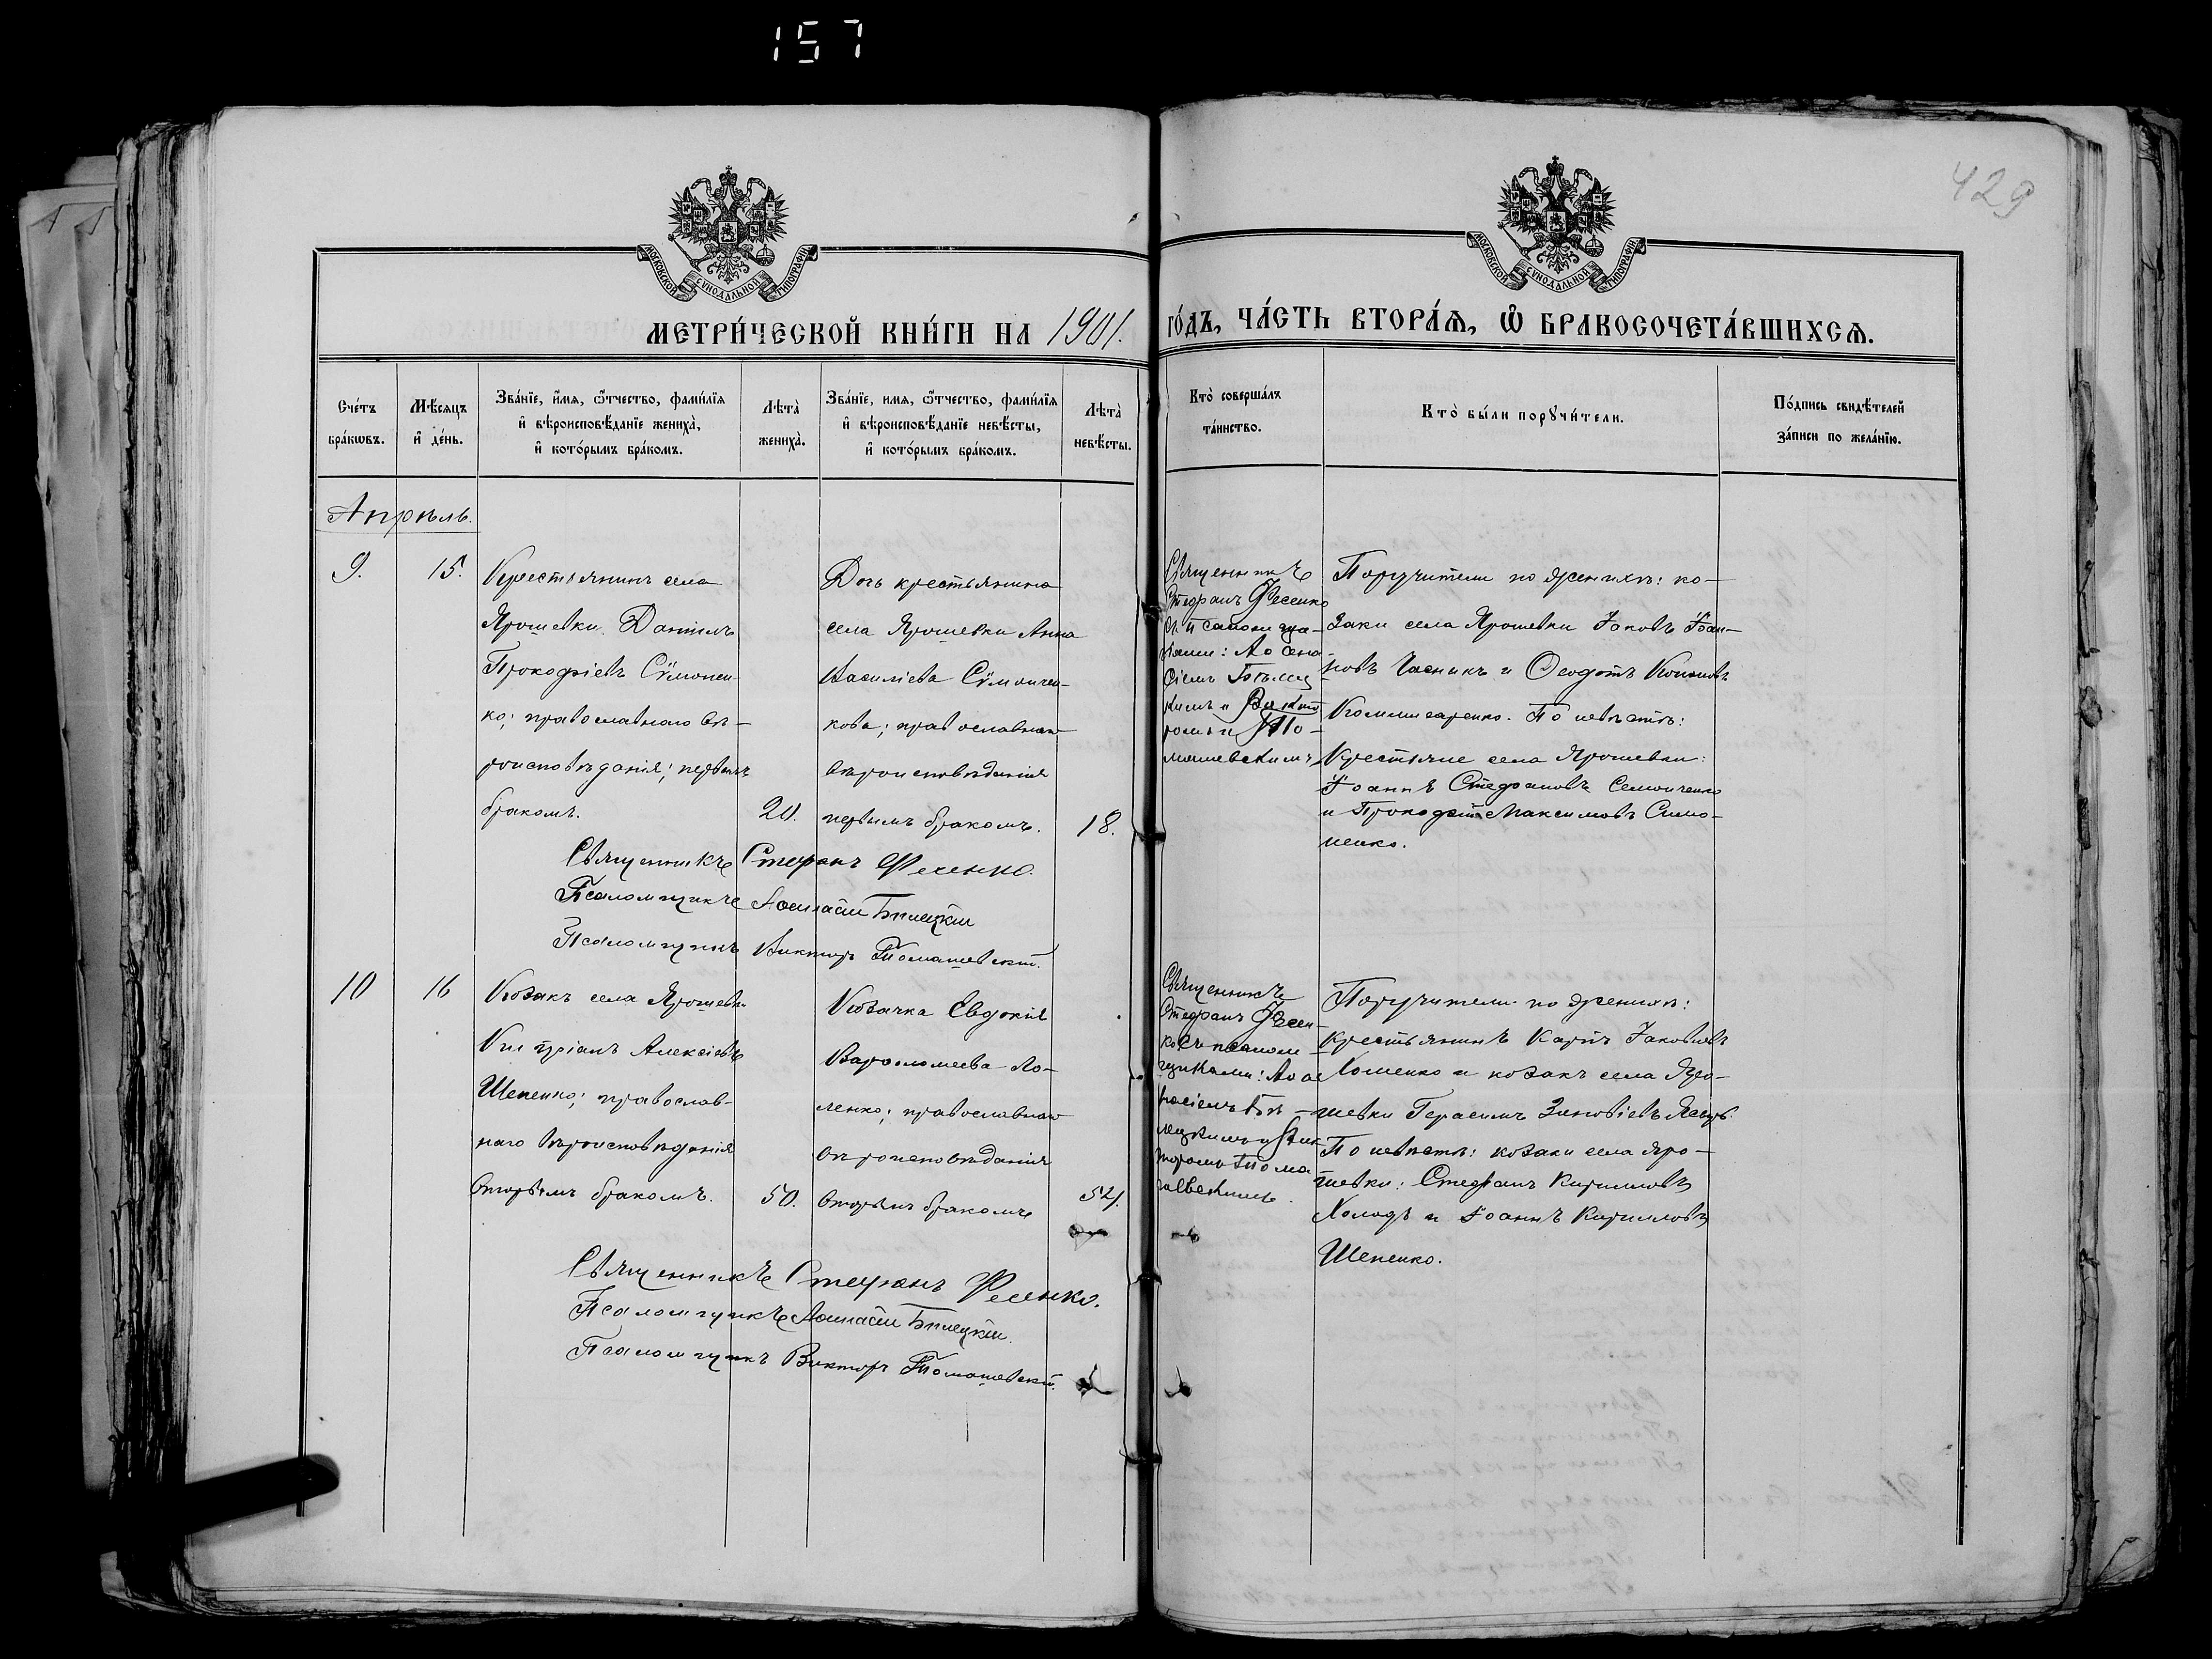 157
429
МОСКОВСКОЙ СѴНОДАЛЬНОЙ ТИПОГРАФІИ
МОСКОВСКОЙ СѴНОДАЛЬНОЙ ТИПОГРАФІИ
МЕТРИ́ЧЕСКОЙ КНИ́ГИ НА 1901.
ГО́ДЪ, ЧА́СТЬ ВТОРА́Ѧ, Ѡ҆ БРАКОСОЧЕТА́ВШИХСѦ.
Сче́тъ
бра́кѡвъ.
Мѣ́сѧцъ
и҆ де́нь.
Зва́нїе, и҆́мѧ, ѻ҆́тчество, фами́лїѧ
и҆ вѣроисповѣ́данїе жениха̀,
и҆ кото́рымъ бра́комъ.
Лѣта̀
жениха̀.
Зва́нїе, имѧ, ѻ҆́тчество, фами́лїѧ
и҆ вѣроисповѣ́данїе невѣ́сты,
и҆ кото́рымъ бра́комъ.
Лѣта̀
невѣ́сты.
Кто̀ соверша́лъ
та́инство.
Кто̀ бы́ли порꙋчи́тели.
По́дпись свидѣ́телей
за́писи по жела́нїю.
Апрѣль.
9.
15.
Крестьянинъ села
Ярошевки Даніилъ
Прокофіевъ Сѵмонен-
ко; православнаго вѣ-
роисповѣданія; первымъ
бракомъ.
20.
Дочь крестьянина
села Ярошевки Анна
Василіева Сѵмончен-
кова; православнаго
вѣроисповѣданія
первымъ бракомъ.
18.
Священникъ
Стефанъ Фесенко
Поручители по женихѣ: ко-
заки села Ярошевки Іаковъ Іоан-
новъ Часникъ и Ѳеодотъ Кононовъ
Коммисаренко. По невѣстѣ:
Крестьяне села Ярошевки:
Іоаннъ Стефановъ Семонченко
и Прокофій Максимовъ Симо-
ненко.
Священникъ Стефанъ Фесенко.
Псаломщикъ Аѳанасій Бѣлецкій
Псаломщикъ Викторъ Томашевскій.
10
16
Козакъ села Ярошевки
Кипріанъ Алексіевъ
Шепенко; православ-
наго вѣроисповѣданія
вторымъ бракомъ.
50.
Козачка Евдокія
Варѳоломеева Ло-
ленко; православнаго
вѣроисповѣданія
вторымъ бракомъ
52.
Священникъ
Стефанъ Фесен-
ко съ псалом-
щиками: Аѳа
насіемъ Бѣ-
лецкимъ и Вик
торомъ Тома
шевскимъ.
Поручители по женихѣ:
крестьянинъ Карпъ Іаковлевъ
Хоменко и козакъ села Яро-
шевки Герасимъ Зиновіевъ
По невѣстѣ: козаки села Яро-
шевки: Стефанъ Кирилловъ
Холодъ и Іоаннъ Кирилловъ
Шепенко.
Священникъ Стефанъ Фесенко.
Псаломщикъ Аѳанасій Бѣлецкій.
Псаломщикъ Викторъ Томашевскій.